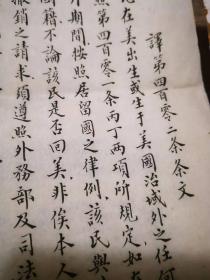 譯第四百零二條條文
在美出生或生于美國治域外之任何
照第四百零一條丙丁兩項所規定如
期間按照居留國之律例該民與
國籍不論該民是否回美非俟本人
撤銷之請求須遵照外務部及司法